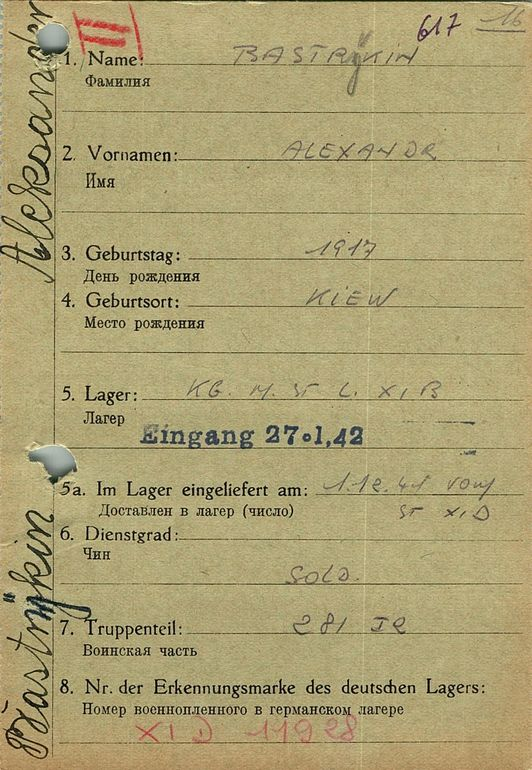 617 16
II
1. Name: BASTRyKIN
Фамилия
2. Vornamen: ALEXANDR
Имя
3. Geburtstag: 1917
День рождения
4. Geburtsort: KIEW
Место рождения
5. Lager: KG. M. ST L. XI B
Лагер
Eingang 27.1,42
5a. Im Lager eingeliefert am: 1.12.41 vom
Доставлен в лагер (число) ST XI D
6. Dienstgrad:
Чин
SOLD.
7. Truppenteil: 281 IR
Воинская часть
8. Nr. der Erkennungsmarke des deutschen Lagers:
Номер военнопленного в германском лагере
XI D 11928
Bastrykin Aleksander